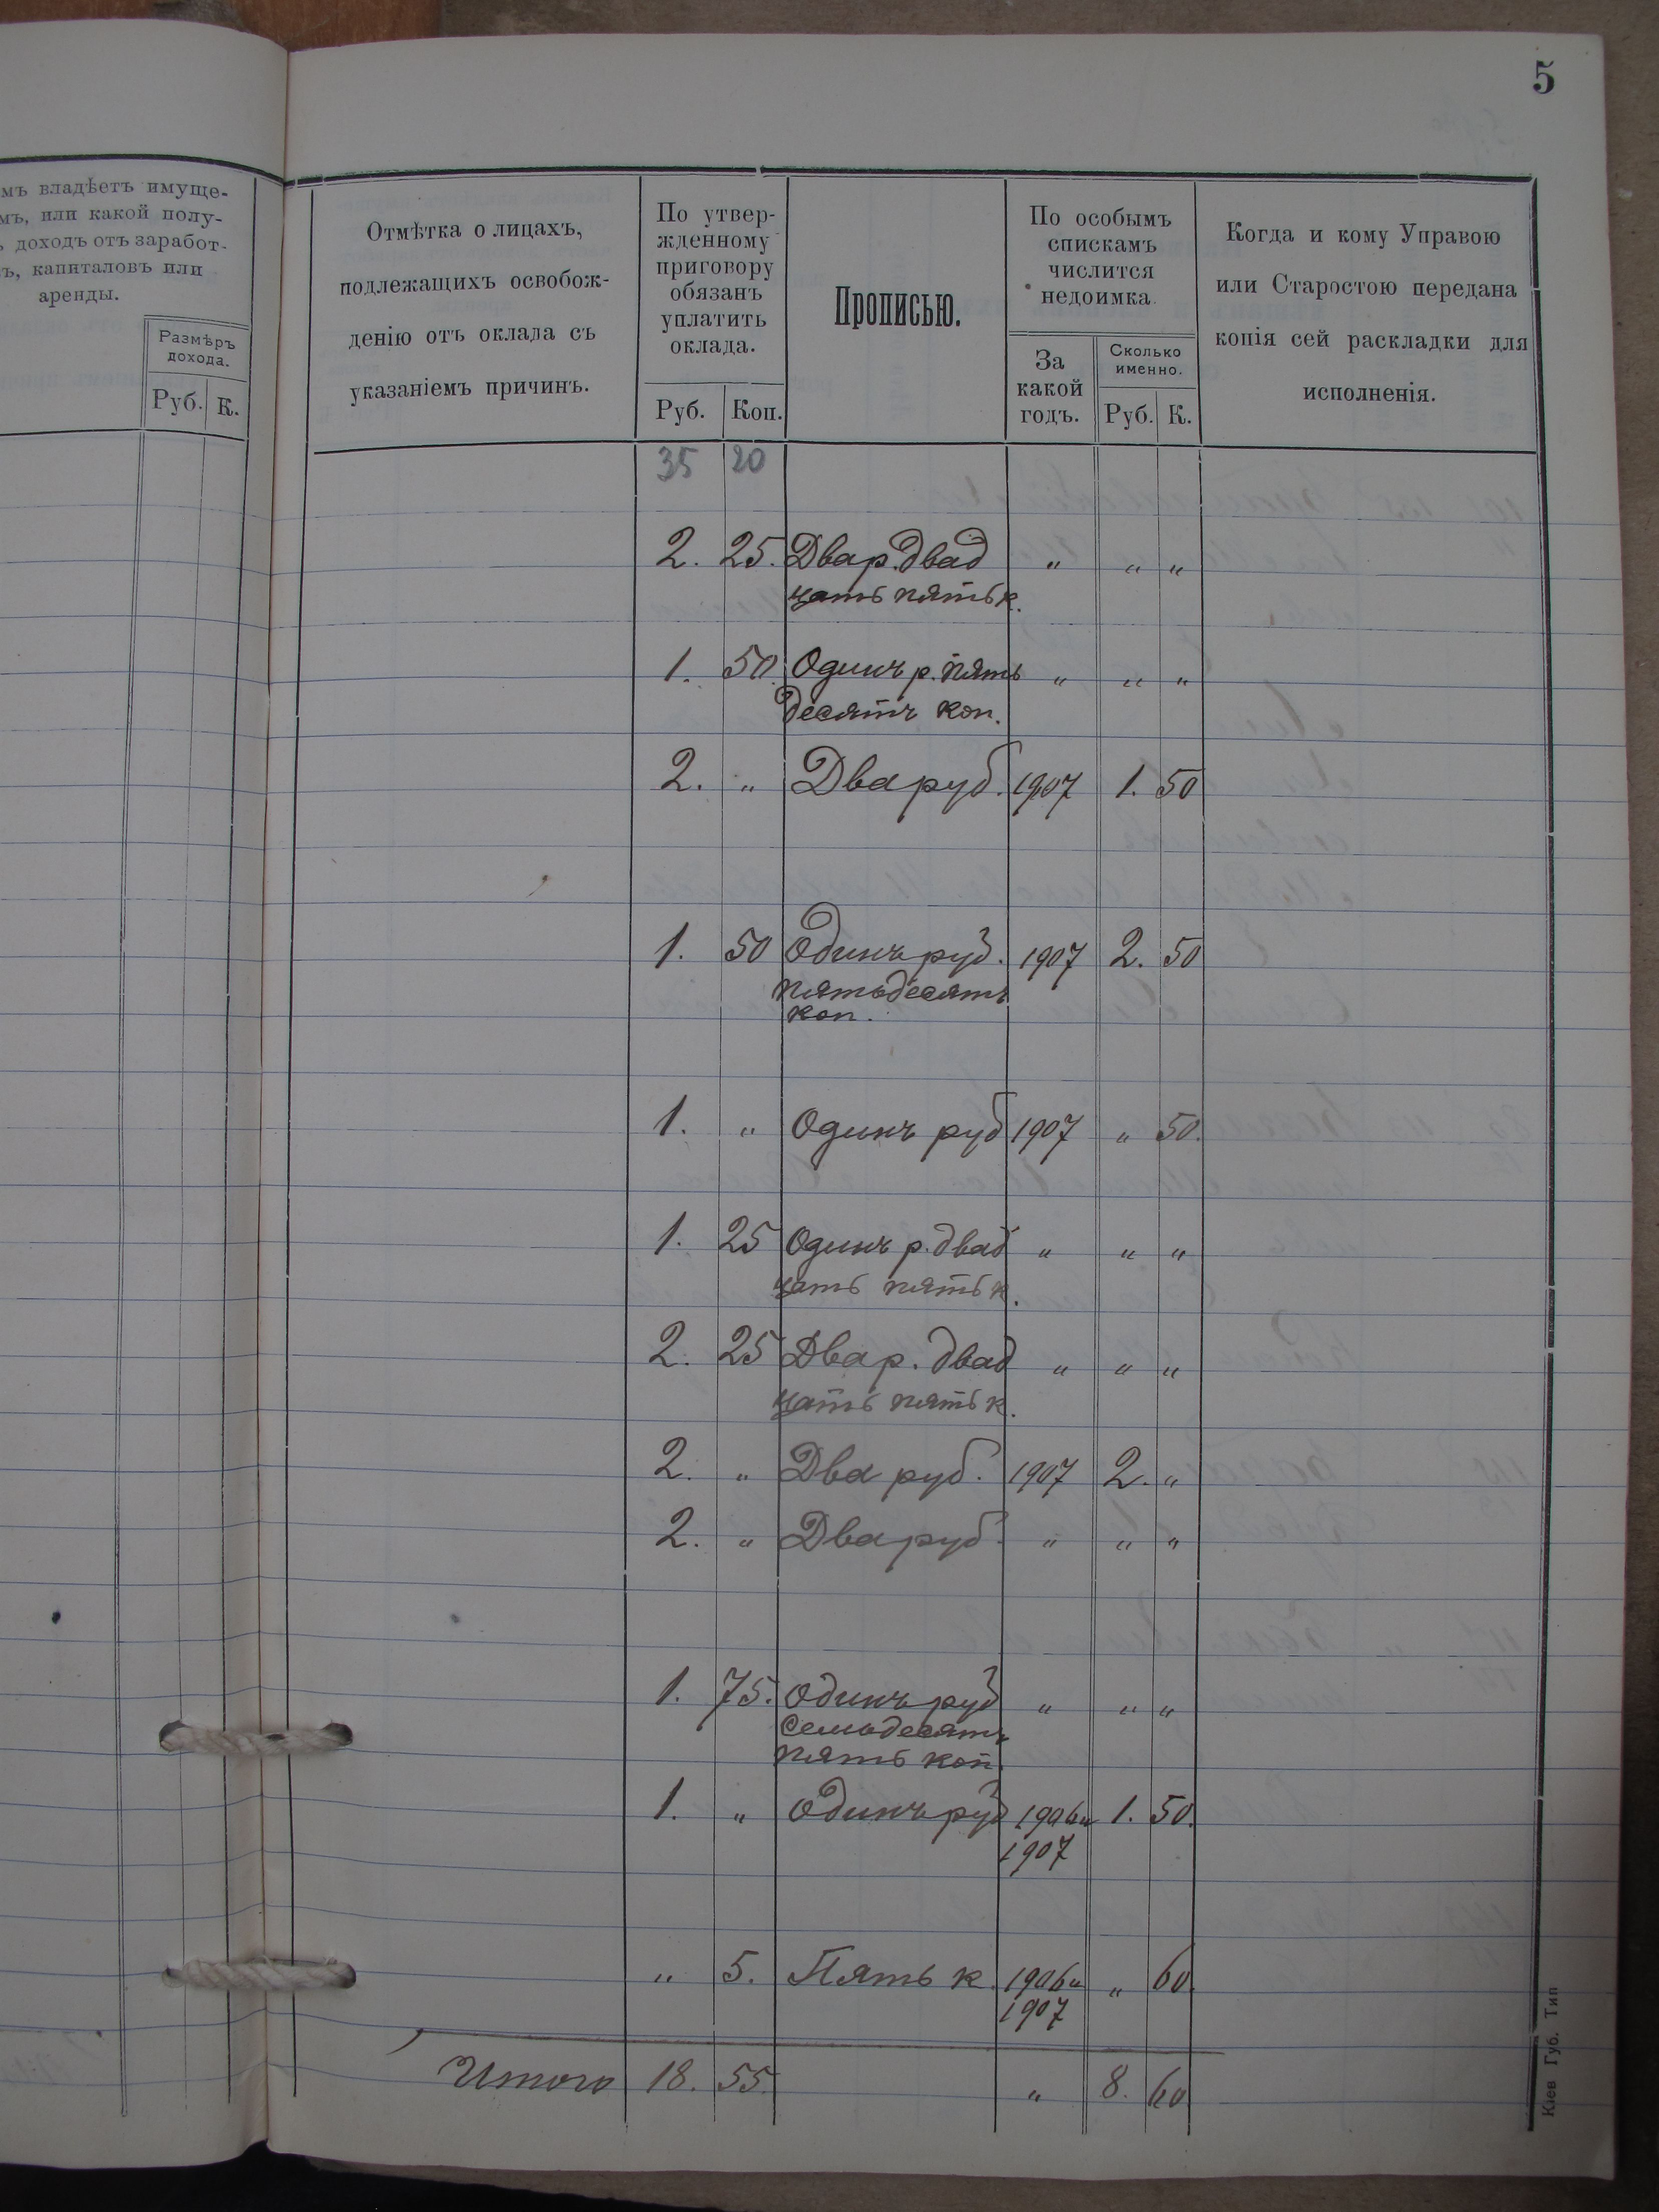 5
мъ владѣетъ имуще-
мъ, или какой полу-
ъ доходъ отъ заработ-
ъ, капиталовъ или
аренды.
Размѣръ
дохода.
Руб. К.
Отмѣтка о лицахъ,
подлежащихъ освобож-
денію отъ оклада съ
указаніемъ причинъ.
По утвер-
жденному
приговору
обязанъ
уплатить
оклада.
Руб. Коп.
Прописью.
По особымъ
спискамъ
числится
недоимка.
За
какой
годъ.
Сколько
именно.
Руб. К.
Когда и кому Управою
или Старостою передана
копія сей раскладки для
исполненія.
35 20
2. 25. Два р. двад „ „ „
цать пять к.
1. 50. Одинъ р. пять „ „ „
десятъ коп.
2. „ Два руб. 1907 1. 50
1. 50 Одинъ руб. 1907 2. 50
пятьдесятъ
коп.
1. „ Одинъ руб 1907 „ 50.
1. 25 Одинъ р. двад „ „ „
цать пять к.
2. 25 Два р. двад „ „ „
цать пять к.
2. „ Два руб. 1907 2. „
2. „ Два руб. „ „ „
1. 75. Одинъ руб „ „ „
семьдесятъ
пять коп.
1. „ Одинъ руб 1906 и 1. 50.
1907
„ 5. Пять к. 1906 и „ 60.
1907
Итого 18. 55. „ 8. 60
Кіев Губ. Тип